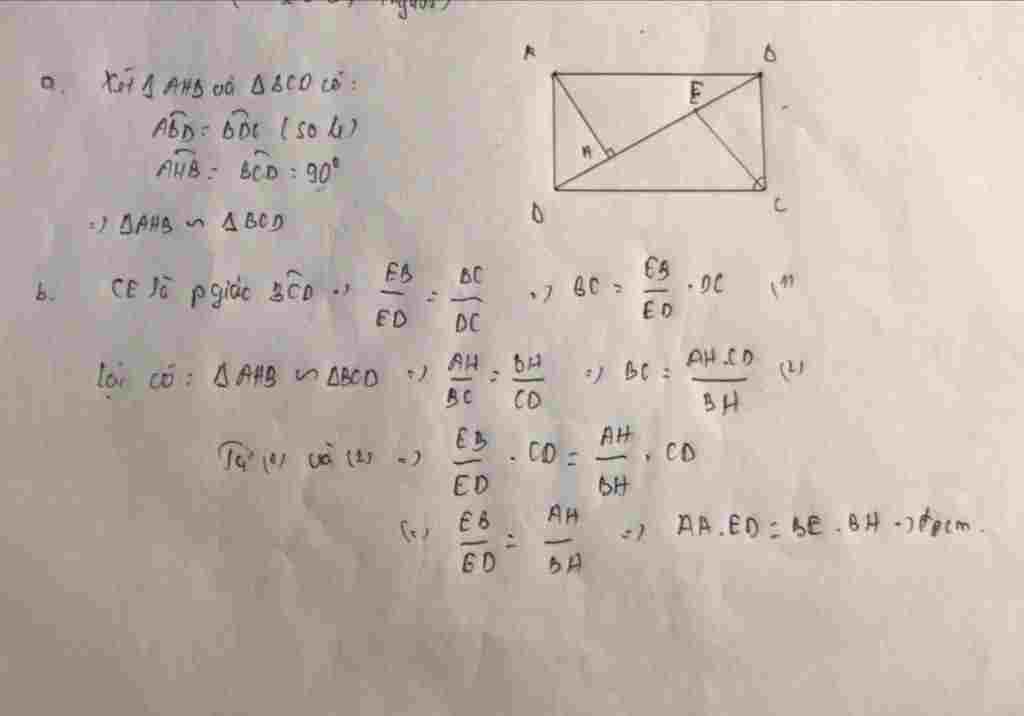 a. Xét Δ AHB và Δ BCD có:
ABD = BDC (so le)
AHB = BCD = 90°
=> ΔAHB ∽ ΔBCD
A B
E
H
D C
b. CE là pgiác BCD => EB/ED = BC/DC => BC = EB/ED . DC (1)
lại có: ΔAHB ∽ ΔBCD => AH/BC = BH/CD => BC = AH.CD/BH (2)
Từ (1) và (2) => EB/ED . CD = AH/BH . CD
(=) EB/ED = AH/BH => AH.ED = BE.BH -> đpcm.